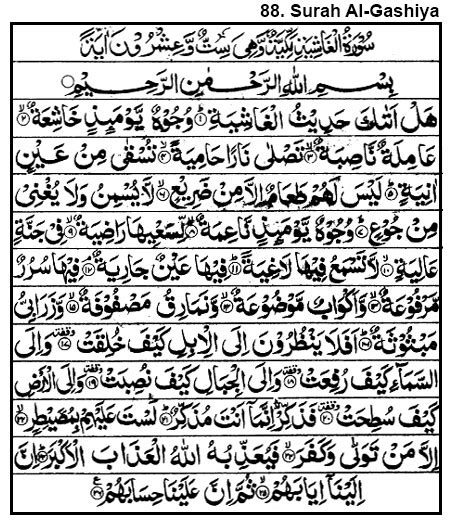 88. Surah Al-Gashiya
سُوْرَةُ الْغَاشِيَةِ مَكِّيَّةٌ وَّهِىَ سِتٌّ وَّعِشْرُوْنَ اٰيَةً
بِسْمِ اللهِ الرَّحْمٰنِ الرَّحِيْمِ
هَلْ اَتٰىكَ حَدِيْثُ الْغَاشِيَةِ ۱ وُجُوْهٌ يَّوْمَئِذٍ خَاشِعَةٌ ۲
عَامِلَةٌ نَّاصِبَةٌ ۳ تَصْلٰى نَارًا حَامِيَةً ۴ تُسْقٰى مِنْ عَيْنٍ
اٰنِيَةٍ ۵ لَيْسَ لَهُمْ طَعَامٌ اِلَّا مِنْ ضَرِيْعٍ ۶ لَّا يُسْمِنُ وَلَا يُغْنِىْ
مِنْ جُوْعٍ ۷ وُجُوْهٌ يَّوْمَئِذٍ نَّاعِمَةٌ ۸ لِّسَعْيِهَا رَاضِيَةٌ ۹ فِىْ جَنَّةٍ
عَالِيَةٍ ۱۰ لَّا تَسْمَعُ فِيْهَا لَاغِيَةً ۱۱ فِيْهَا عَيْنٌ جَارِيَةٌ ۱۲ فِيْهَا سُرُرٌ
مَّرْفُوْعَةٌ ۱۳ وَّاَكْوَابٌ مَّوْضُوْعَةٌ ۱۴ وَّنَمَارِقُ مَصْفُوْفَةٌ ۱۵ وَّزَرَابِىُّ
مَبْثُوْثَةٌ ۱۶ اَفَلَا يَنْظُرُوْنَ اِلَى الْاِبِلِ كَيْفَ خُلِقَتْ ۱۷ وَاِلَى
السَّمَآءِ كَيْفَ رُفِعَتْ ۱۸ وَاِلَى الْجِبَالِ كَيْفَ نُصِبَتْ ۱۹ وَاِلَى الْاَرْضِ
كَيْفَ سُطِحَتْ ۲۰ فَذَكِّرْ اِنَّمَآ اَنْتَ مُذَكِّرٌ ۲۱ لَسْتَ عَلَيْهِمْ بِمُصَۜيْطِرٍ ۲۲
اِلَّا مَنْ تَوَلّٰى وَكَفَرَ ۲۳ فَيُعَذِّبُهُ اللهُ الْعَذَابَ الْاَكْبَرَ ۲۴ اِنَّ
اِلَيْنَآ اِيَابَهُمْ ۲۵ ثُمَّ اِنَّ عَلَيْنَا حِسَابَهُمْ ۲۶